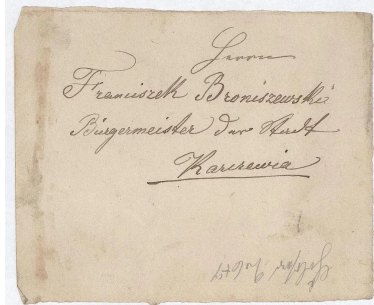 Herrn
Franciszek Broniszewski
Bürgermeister der Stadt
Karczewia